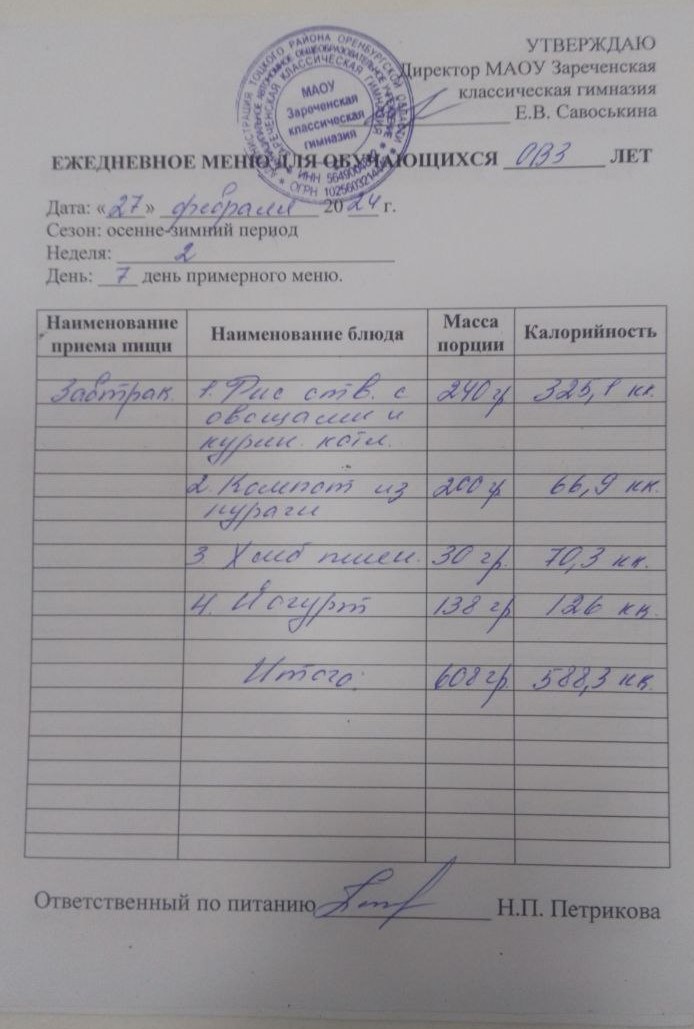 УТВЕРЖДАЮ
Директор МАОУ Зареченская
классическая гимназия
Е.В. Савоськина
МАОУ
Зареченская
классическая
гимназия
ЕЖЕДНЕВНОЕ МЕНЮ ДЛЯ ОБУЧАЮЩИХСЯ ОВЗ ЛЕТ
Дата: «27» февраля 2024 г.
Сезон: осенне-зимний период
Неделя: 2
День: 7 день примерного меню.
Наименование приема пищи Наименование блюда Масса порции Калорийность
Завтрак 1. Рис отв. с 240 гр 325,1 кк.
овощами и
курин. котл.
2. Компот из 200 гр 66,9 кк.
кураги
3 Хлеб пшен. 30 гр. 70,3 кк.
4. Йогурт 138 гр 126 кк.
Итого: 608 гр. 588,3 кк.
Ответственный по питанию Н.П. Петрикова